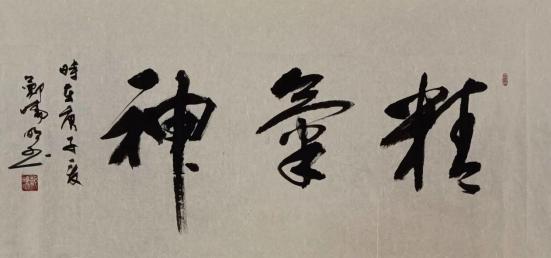 精氣神
時在庚子夏